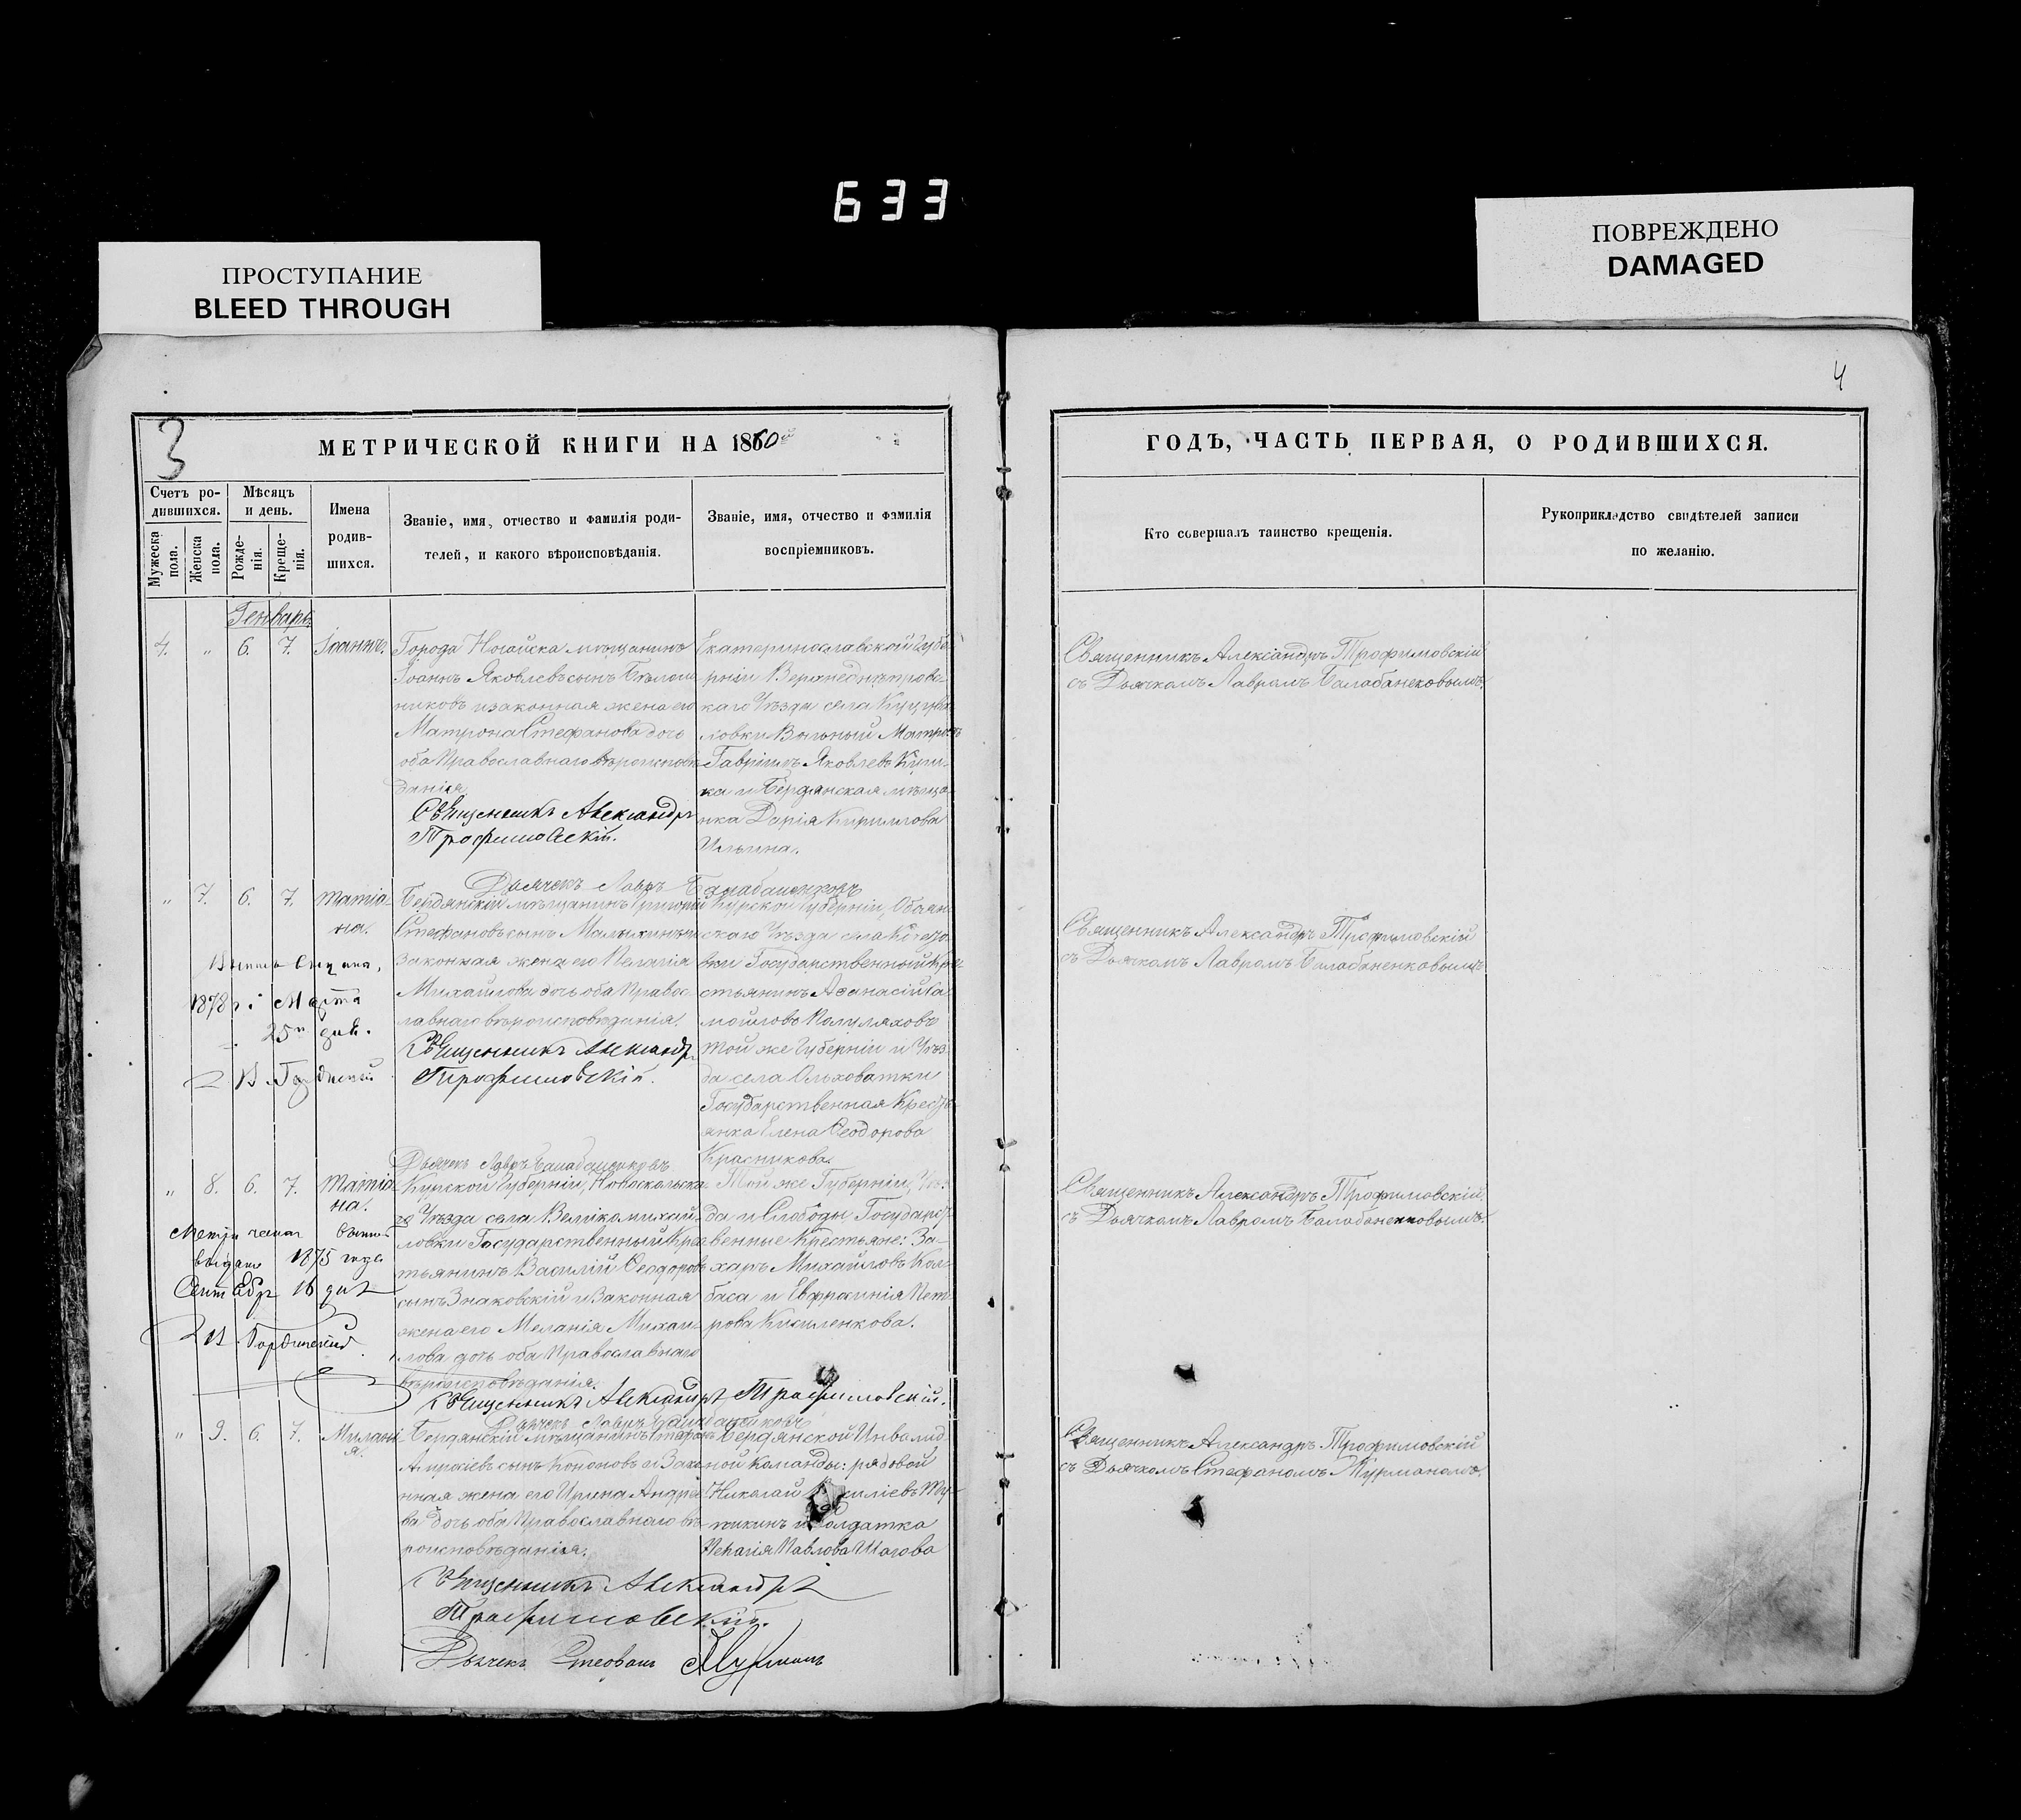 633
ПРОСТУПАНИЕ
BLEED THROUGH
ПОВРЕЖДЕНО
DAMAGED
4
3
МЕТРИЧЕСКОЙ КНИГИ НА 1860й
ГОДЪ, ЧАСТЬ ПЕРВАЯ, О РОДИВШИХСЯ.
Счетъ ро-
дившихся.
Мужеска
пола.
Женска
пола.
Мѣсяцъ
и день.
Рожде-
нія.
Креще-
нія.
Имена
родив-
шихся.
Званіе, имя, отчество и фамилія роди-
телей, и какого вѣроисповѣданія.
Званіе, имя, отчество и фамилія
воспріемниковъ.
Кто совершалъ таинство крещенія.
Рукоприкладство свидѣтелей записи
по желанію.
Генварь
4. " 6. 7. Іоаннъ.
Города Ногайска мѣщанинъ
Іоаннъ Яковлевъ сынъ Бѣлош
никовъ и законная жена его
Матрона Стефанова дочь
оба Православнаго вѣроисповѣ
данія
Священникъ Александръ
Трофимовскій.
Дьячекъ Лавръ Балабаненковъ
Екатеринославской Губе
рніи Верхнеднѣпровс
каго Уѣзда села
ловки Вольный Матросъ
Гавріилъ Яковлевъ
ка и Бердянская мѣща
нка Дарія Кириллова
Ильина.
Священникъ Александръ Трофимовскій
съ Дьячкомъ Лавромъ Балабанековымъ.
" 7. 6. 7. Татіа-
на.
1878 г. Марта
25го дня.
Бердянскій мѣщанинъ Григорій
Стефановъ сынъ Малыхинъ и
Законная жена его Пелагія
Михайлова дочь оба Правос
лавнаго вѣроисповѣданія.
Священникъ Александръ
Трофимовскій.
Дьячекъ Лавръ Балабаненковъ
Курской Губерніи, Обоян
скаго Уѣзда села
вки Государственный Кре
стьянинъ Аѳанасій Са
мойловъ Полуляховъ
той же Губерніи и Уѣз
да села Ольховатки
Государственная Кресть
янка Елена Ѳеодорова
Красникова.
Священникъ Александръ Трофимовскій
съ Дьячкомъ Лавромъ Балабаненковымъ
" 8. 6. 7. Татіа
на.
выдано 1875 года
Сентября 16 дня
Курской Губерніи, Новоскольска
го Уѣзда села Великомихай-
ловки Государственный Крес
тьянинъ Василій Ѳеодоровъ
сынъ Знаковскій и Законная
жена его Меланія Михаи
лова дочь оба Православнаго
вѣроисповѣданія.
Священникъ Александръ Трофимовскій.
Дьячекъ Лавръ Балабаненковъ
Той же Губерніи, Уѣз
да и Слободы Государст
венные Крестьяне: За-
харъ Михайловъ Кол-
баса и Евфросинія Пет
рова Кисиленкова.
Священникъ Александръ Трофимовскій.
съ Дьячкомъ Лавромъ Балабаненковымъ.
" 9. 6. 7. Милані
я.
Бердянскій мѣщанинъ
сынъ Кононовъ и Зако
нная жена его Ирина Андрее
ва дочь оба Православнаго вѣ
роисповѣданія.
Священникъ Александръ
Трофимовскій.
Дьячекъ Стефанъ Журманъ
Бердянской Инвалид
ной Команды: рядовой
Николай
и Солдатка
Пелагія Павлова Шагова
Священникъ Александръ Трофимовскій
съ Дьячкомъ Стефаномъ Журманомъ.